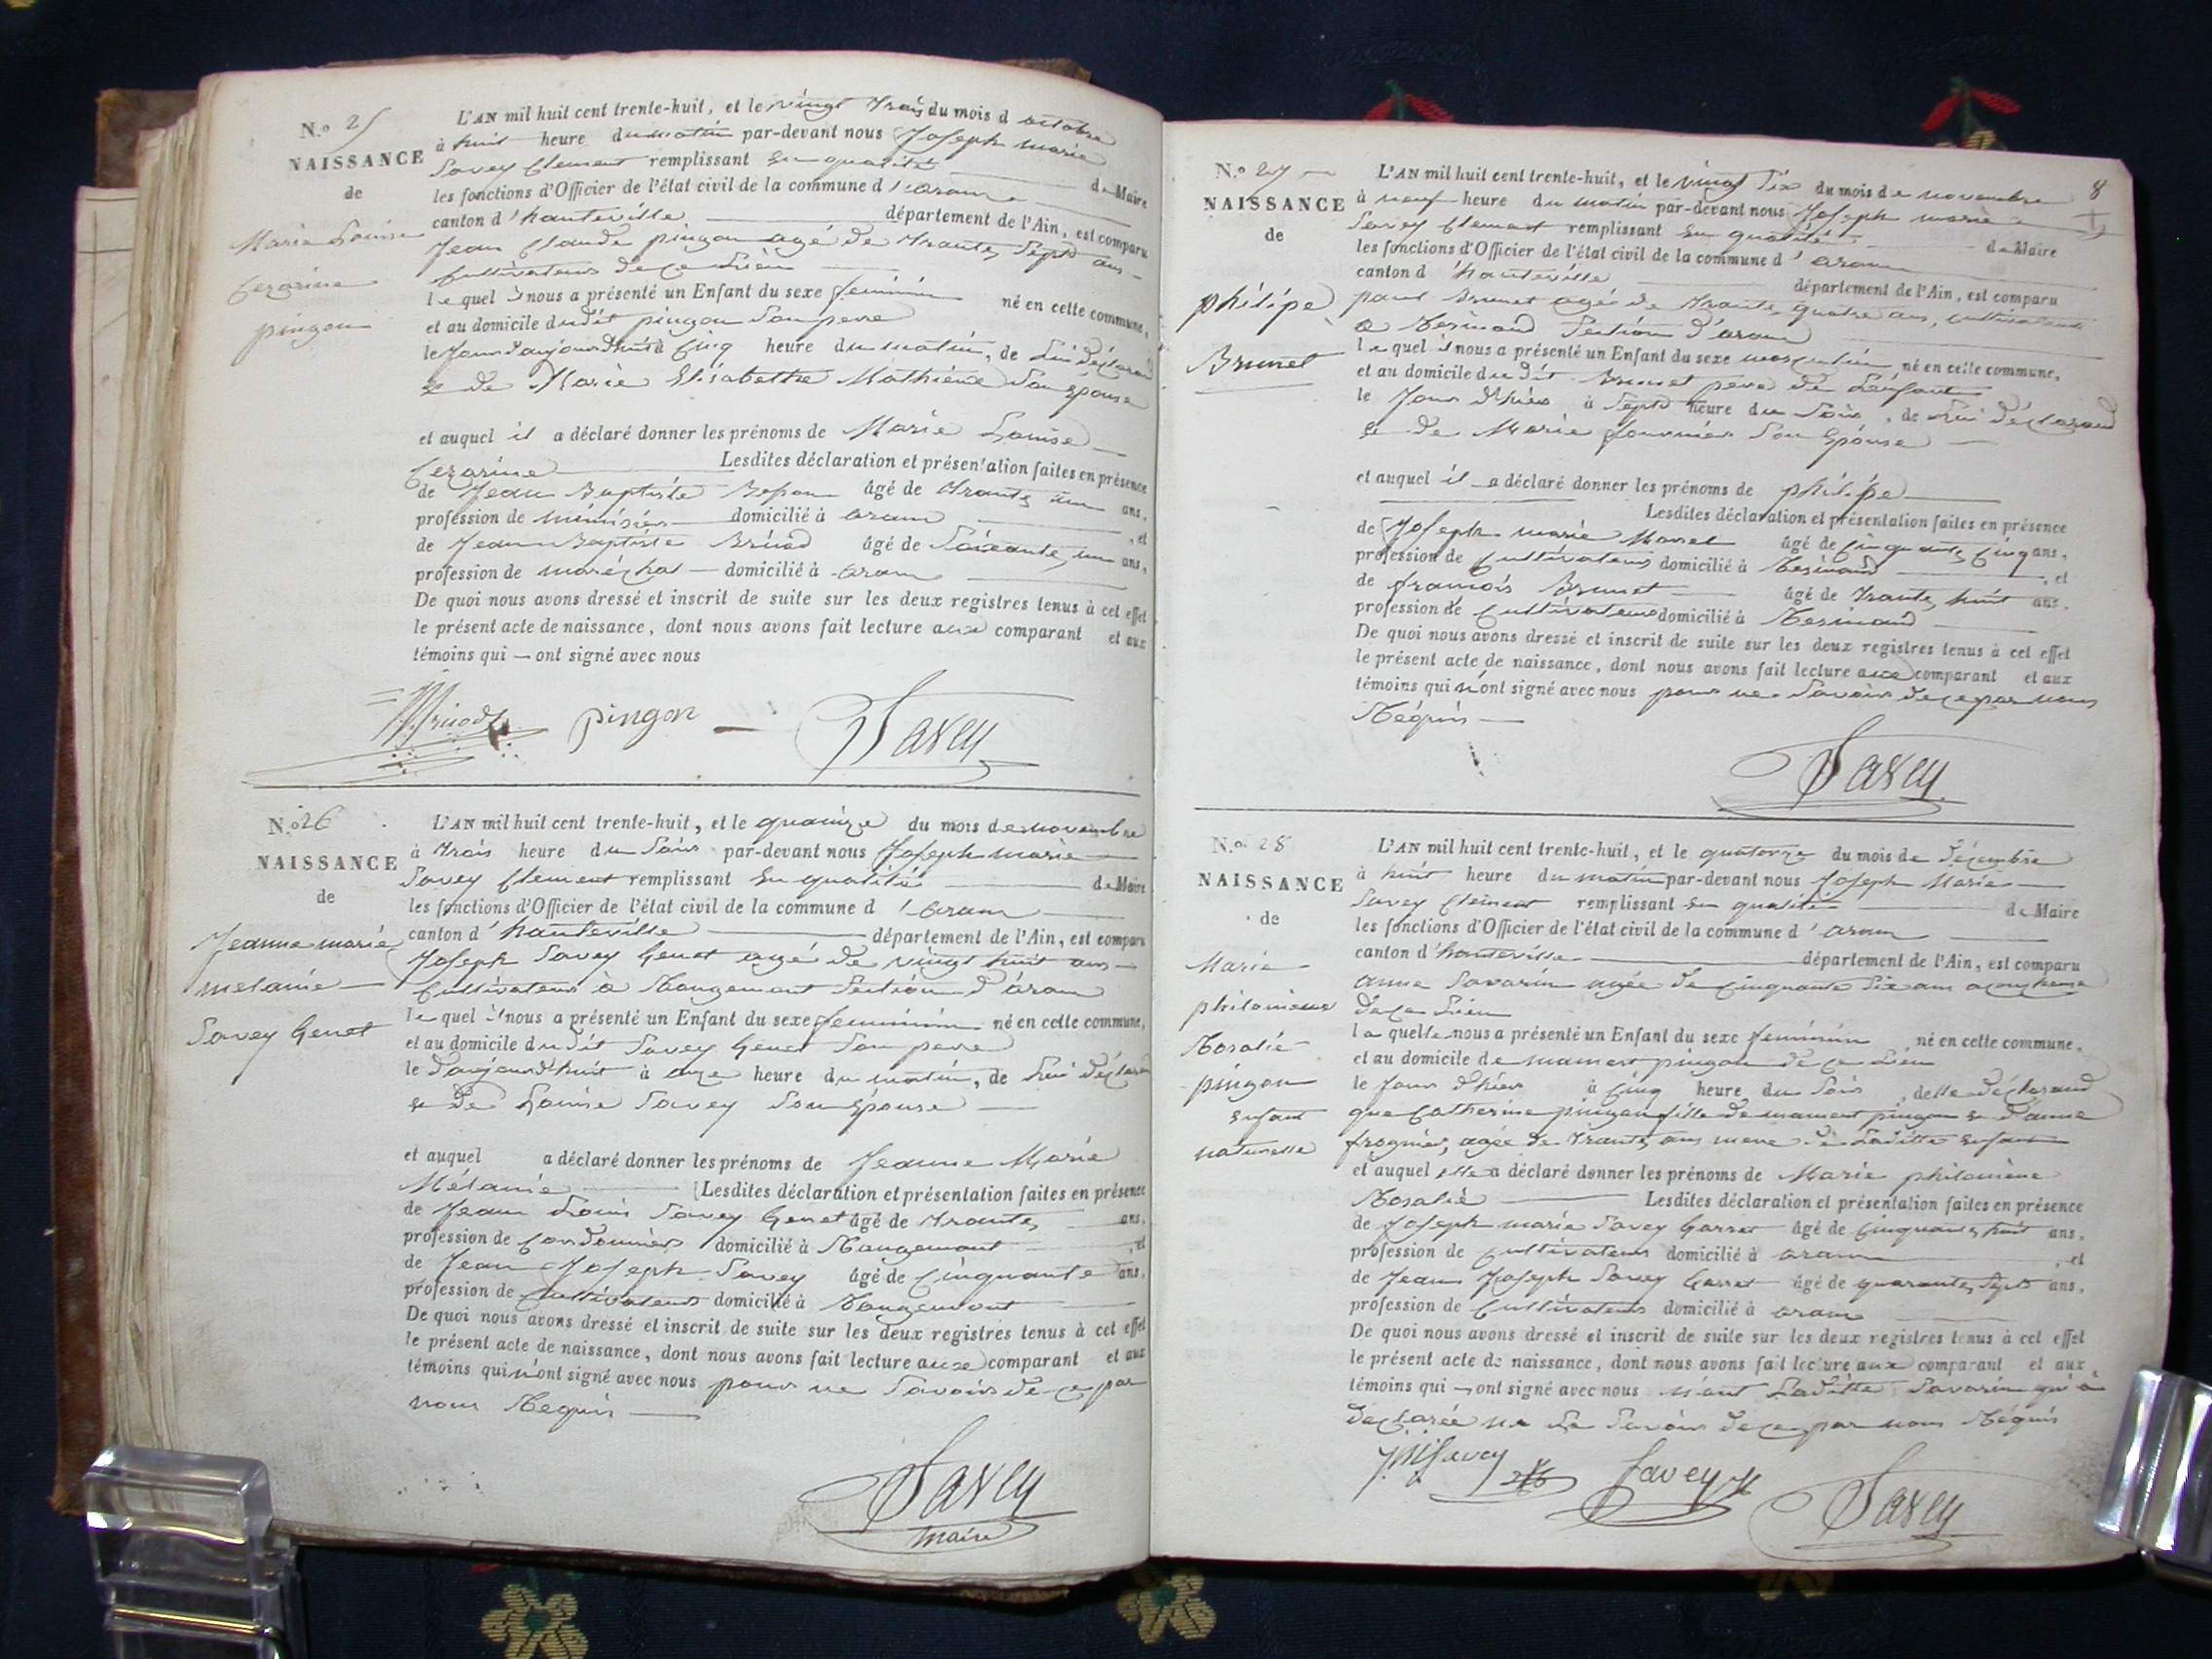 N.o 25
NAISSANCE
de
Marie Louise
Cezarine
pingon
L'AN mil huit cent trente-huit, et le vingt trois du mois d octobre
à huit heure du matin par-devant nous Joseph marie
Savey Clement remplissant en qualité de Maire
les fonctions d'Officier de l'état civil de la commune d'aran
canton d'hauteville département de l'Ain, est comparu
Jean Claude pingon agé de trante sept ans
Cultivateur de ce Lieu
lequel il nous a présenté un Enfant du sexe feminin né en cette commune,
et au domicile dudit pingon son pere
le Jour d'aujourd'huit à Cinq heure du matin, de Lui déclarand
et de Marie Elisabethe Mathieu son épouse
et auquel il a déclaré donner les prénoms de Marie Louise
Cezarine Lesdites déclaration et présentation faites en présence
de Jean Baptiste âgé de trante un ans,
profession de menisier domicilié à aran, et
de Jean Baptiste Brinod âgé de Soixante un ans,
profession de maréchal domicilié à aran
De quoi nous avons dressé et inscrit de suite sur les deux registres tenus à cet effet
le présent acte de naissance, dont nous avons fait lecture aux comparant et aux
témoins qui ont signé avec nous
Brinod pingon Savey
N.o 26
NAISSANCE
de
Jeanne marie
melanie
Savey Genet
L'AN mil huit cent trente-huit, et le quainze du mois de novembre
à trois heure du Soir par-devant nous Joseph marie
Savey Clement remplissant en qualité de Maire
les fonctions d'Officier de l'état civil de la commune d'aran
canton d'hauteville département de l'Ain, est comparu
Joseph Savey Genet agé de vingt huit ans
Cultivateur à Rougemont Section d'aran
lequel il nous a présenté un Enfant du sexe feminin né en cette commune,
et au domicile dudit Savey Genet son pere
le d'aujourd'huit à onze heure du matin, de Lui déclarand
et de Louise Savey son épouse
et auquel a déclaré donner les prénoms de Jeanne Marie
Mélanie Lesdites déclaration et présentation faites en présence
de Jean Louis Savey Genet âgé de trante ans,
profession de Cordonnier domicilié à Rougemont, et
de Jean Joseph Savey âgé de Cinquante ans,
profession de Cultivateur domicilié à Rougemont
De quoi nous avons dressé et inscrit de suite sur les deux registres tenus à cet effet
le présent acte de naissance, dont nous avons fait lecture aux comparant et aux
témoins qui n'ont signé avec nous pour ne Savoir de ce par
nous Requis
Savey
maire
8
N.o 27
NAISSANCE
de
philipe
Brunet
L'AN mil huit cent trente-huit, et le vingt Six du mois de novembre
à neuf heure du matin par-devant nous Joseph marie
Savey Clement remplissant en qualité de Maire
les fonctions d'Officier de l'état civil de la commune d'aran
canton d'hauteville département de l'Ain, est comparu
paul Brunet agé de trante quatre ans, cultivateur
a Resinand Section d'aran
lequel il nous a présenté un Enfant du sexe masculin né en cette commune,
et au domicile du dit Brunet pere de L'enfant
le Jour d'hier à Sept heure du Soir, de Lui déclarand
et de Marie fournier son Epouse
et auquel il a déclaré donner les prénoms de philipe
Lesdites déclaration et présentation faites en présence
de Joseph marie âgé de Cinquante Cinq ans,
profession de Cultivateur domicilié à Resinand, et
de francois Brunet âgé de trante huit ans,
profession de Cultivateur domicilié à Resinand
De quoi nous avons dressé et inscrit de suite sur les deux registres tenus à cet effet
le présent acte de naissance, dont nous avons fait lecture aux comparant et aux
témoins qui n'ont signé avec nous pour ne Savoir de ce par nous
Réquis
Savey
N.o 28
NAISSANCE
de
Marie
philomene
Rosalie
pingon
enfant
naturelle
L'AN mil huit cent trente-huit, et le quatorze du mois de Décembre
à huit heure du matin par-devant nous Joseph Marie
Savey Clement remplissant en qualité de Maire
les fonctions d'Officier de l'état civil de la commune d'aran
canton d'hauteville département de l'Ain, est comparu
anne Savarin agée de Cinquante Six ans
de ce Lieu
laquelle nous a présenté un Enfant du sexe feminin né en cette commune,
et au domicile de mamert pingon de ce Lieu
le Jour d'hier à Cinq heure du Soir, d'elle déclarand
que Catherine pingon fille de mamert pingon et d'anne
agée de trante ans mere de Ladite enfant
et auquel elle a déclaré donner les prénoms de Marie philomene
Rosalie Lesdites déclaration et présentation faites en présence
de Joseph marie Savey Garret âgé de Cinquante huit ans,
profession de Cultivateur domicilié à aran, et
de Jean Joseph Savey Garret âgé de quarante Sept ans,
profession de Cultivateur domicilié à aran
De quoi nous avons dressé et inscrit de suite sur les deux registres tenus à cet effet
le présent acte de naissance, dont nous avons fait lecture aux comparant et aux
témoins qui ont signé avec nous Ladite Savarin qui a
déclarée ne le Savoir de ce par nous Réquis
Savey Savey Savey